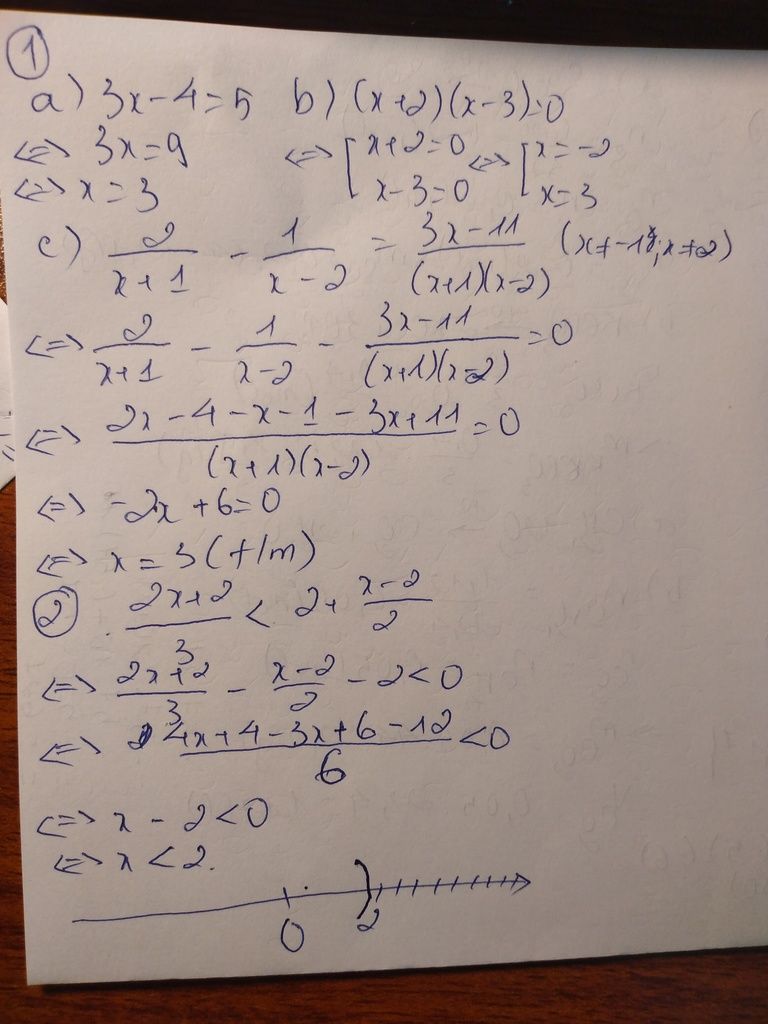 1
a) 3x-4=5 b) (x+2)(x-3)=0
<=> 3x=9 <=> [x+2=0 <=> [x=-2
<=> x=3 x-3=0 x=3
c) 2/(x+1) - 1/(x-2) = (3x-11)/((x+1)(x-2)) (x≠-1; x≠2)
<=> 2/(x+1) - 1/(x-2) - (3x-11)/((x+1)(x-2)) =0
<=> (2x-4-x-1-3x+11)/((x+1)(x-2)) =0
<=> -2x+6=0
<=> x=3 (t/m)
2 (2x+2)/3 < 2+ (x-2)/2
<=> (2x+2)/3 - (x-2)/2 -2<0
<=> (4x+4-3x+6-12)/6 <0
<=> x-2<0
<=> x<2.
0 2